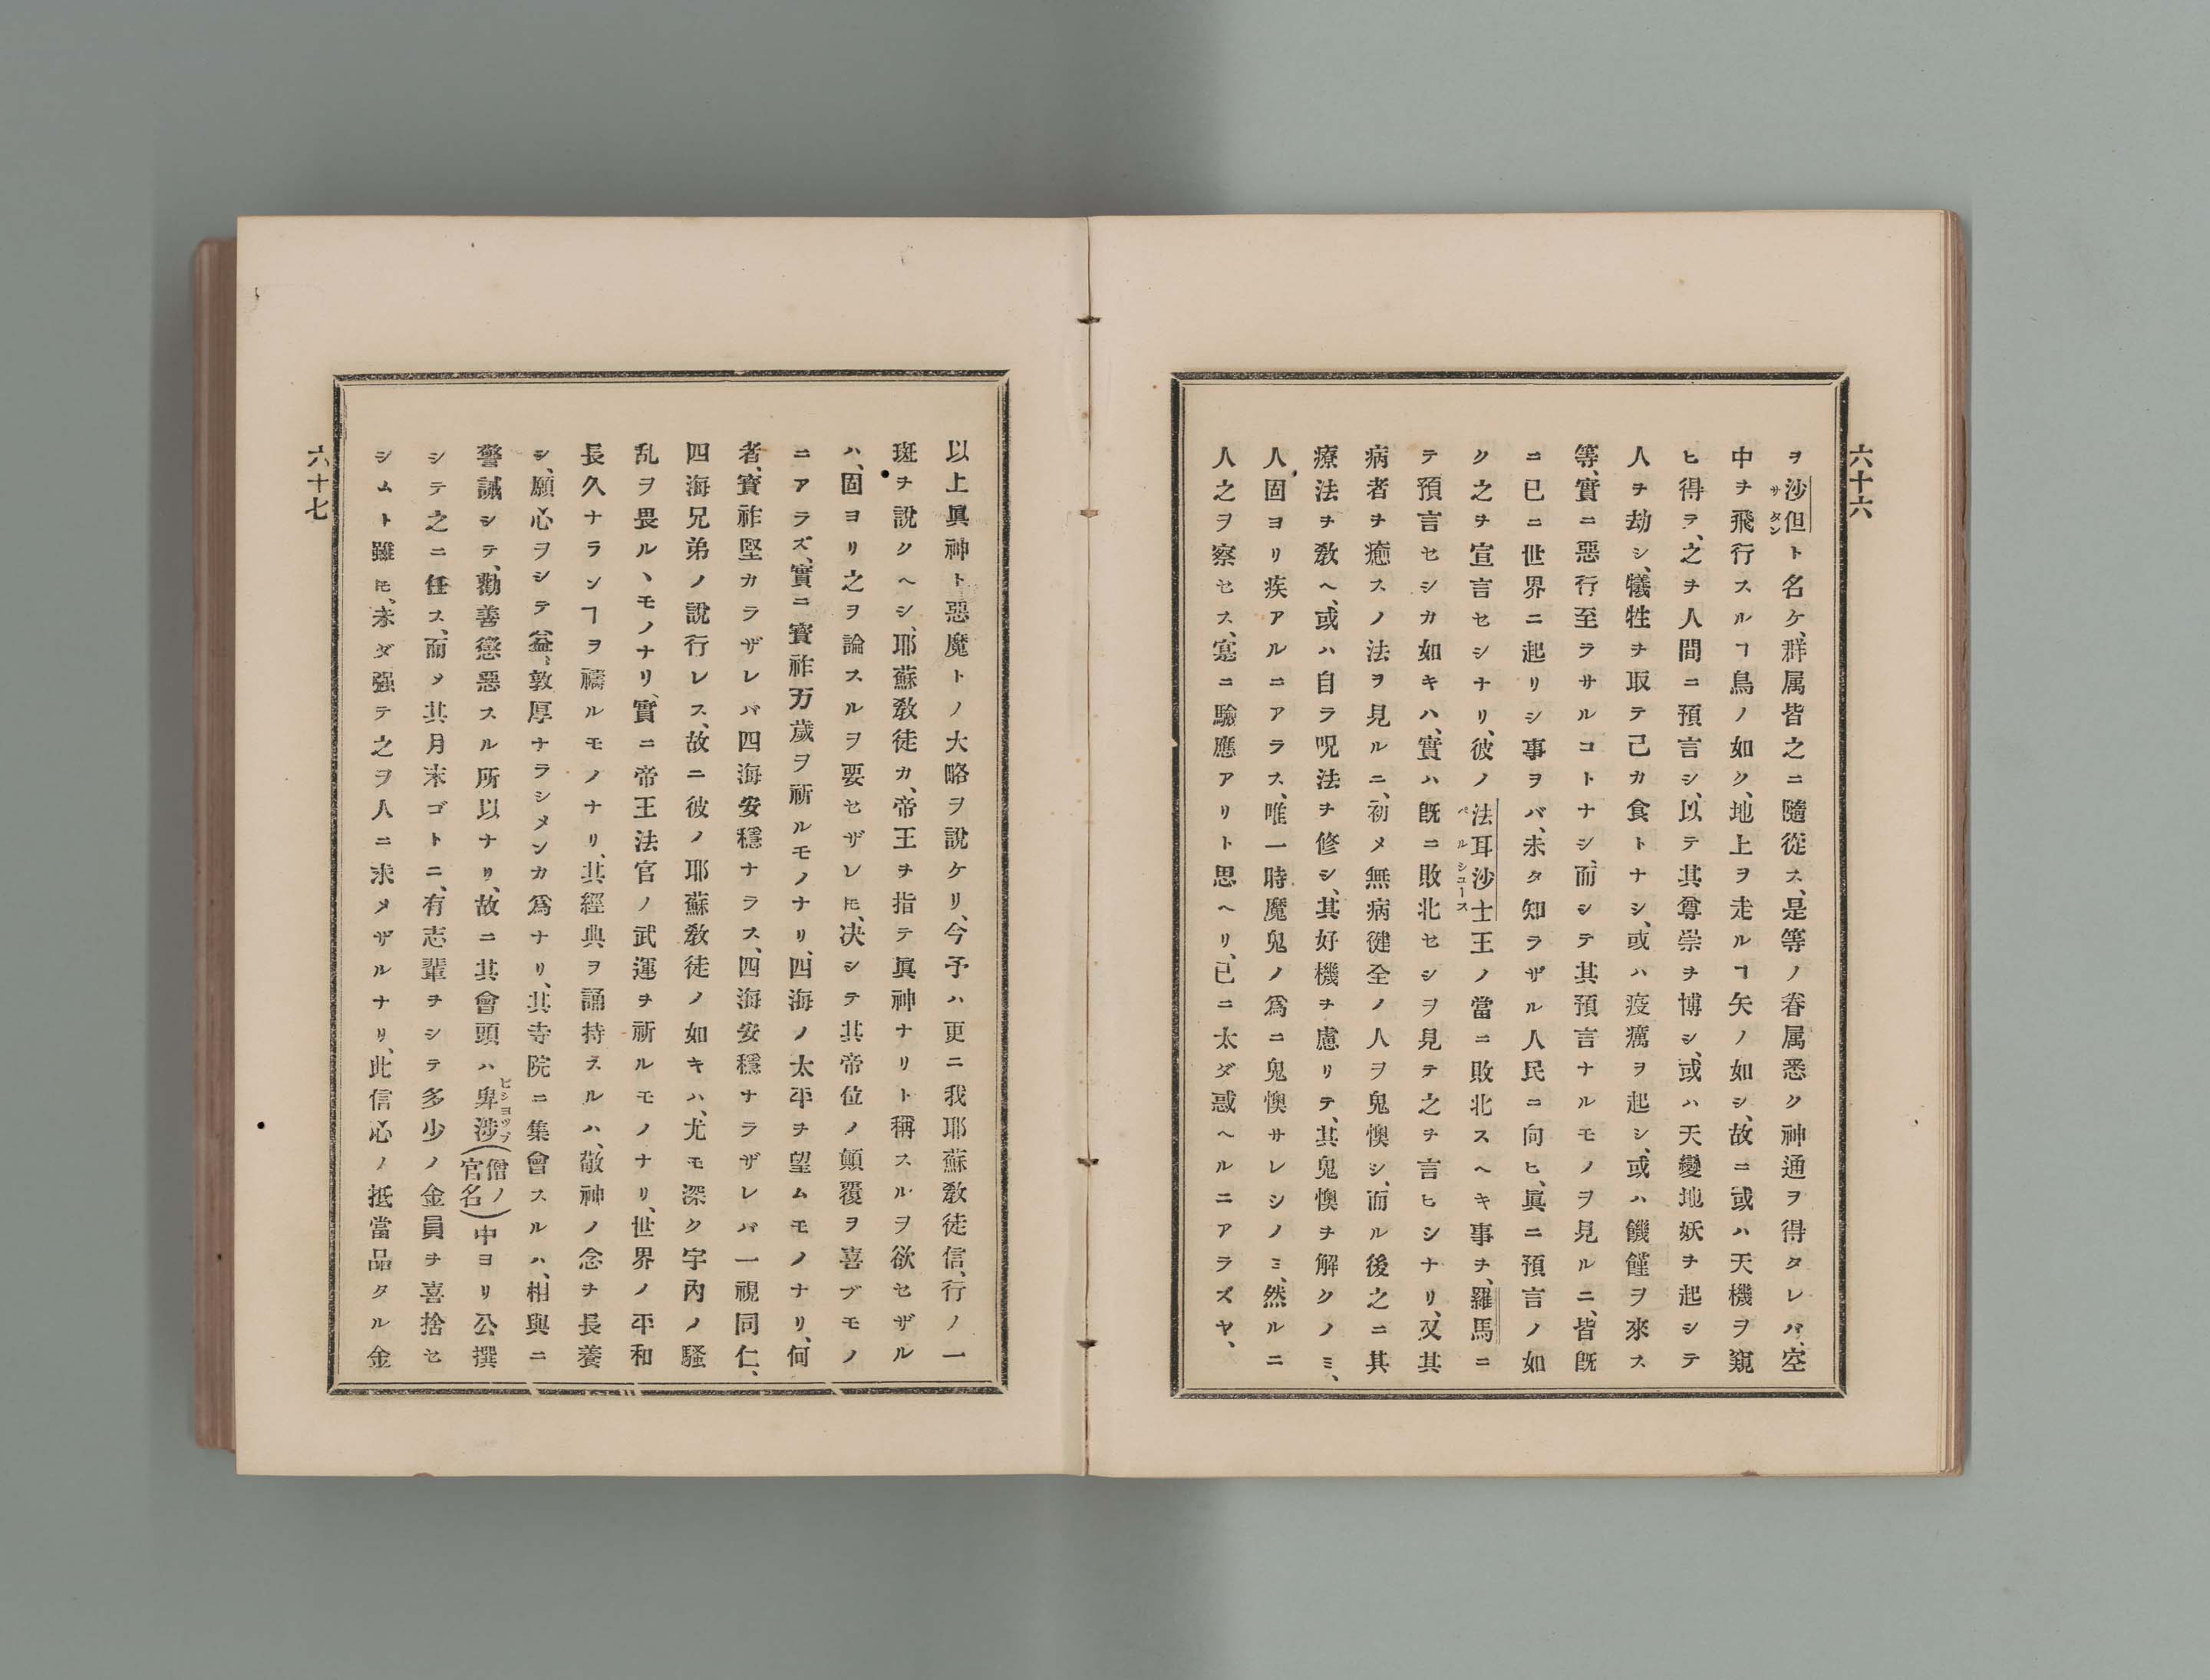 六十六
ヲ沙但ト名ケ、群属皆之ニ隨從ス、是等ノ眷属悉ク神通ヲ得タレバ、空
サタン
中ヲ飛行スルヿ鳥ノ如ク、地上ヲ走ルヿ矢ノ如シ、故ニ或ハ天機ヲ窺
ヒ得テ、之ヲ人間ニ預言シ、以テ其尊崇ヲ博シ、或ハ天變地妖ヲ起シテ
人ヲ劫シ、犧牲ヲ取テ己カ食トナシ、或ハ疫癘ヲ起シ、或ハ饑饉ヲ來ス
等、實ニ惡行至ラサルコトナシ、而シテ其預言ナルモノヲ見ルニ、皆既
ニ已ニ世界ニ起リシ事ヲバ、未タ知ラザル人民ニ向ヒ、眞ニ預言ノ如
ク之ヲ宣言セシナリ、彼ノ法耳沙士王ノ當ニ敗北スヘキ事ヲ、羅馬ニ
ペルシュース
テ預言セシカ如キハ、實ハ既ニ敗北セシヲ見テ之ヲ言ヒシナリ、又其
病者ヲ癒スノ法ヲ見ルニ、初メ無病健全ノ人ヲ鬼懊シ、而ル後之ニ其
療法ヲ敎ヘ、或ハ自ラ呪法ヲ修シ、其好機ヲ慮リテ、其鬼懊ヲ解クノミ、
人固ヨリ疾アルニアラス、唯一時魔鬼ノ爲ニ鬼懊サレシノミ、然ルニ
人之ヲ察セス、寔ニ驗應アリト思ヘリ、已ニ太ダ惑ヘルニアラズヤ、
以上眞神ト惡魔トノ大略ヲ說ケリ、今予ハ更ニ我耶蘇敎徒信、行ノ一
斑ヲ說クヘシ、耶蘇敎徒カ、帝王ヲ指テ眞神ナリト稱スルヲ欲セザル
ハ、固ヨリ之ヲ論スルヲ要セザレ𪜈、决シテ其帝位ノ顛覆ヲ喜ブモノ
ニアラズ、實ニ寳祚万歲ヲ祈ルモノナリ、四海ノ太平ヲ望ムモノナリ、何
者、寳祚堅カラザレバ四海安穩ナラス、四海安穩ナラザレバ一視同仁、
四海兄弟ノ說行レス、故ニ彼ノ耶蘇敎徒ノ如キハ、尤モ深ク宇內ノ騷
乱ヲ畏ルヽモノナリ、實ニ帝王法官ノ武運ヲ祈ルモノナリ、世界ノ平和
長久ナランヿヲ禱ルモノナリ、其經典ヲ誦持スルハ、敬神ノ念ヲ長養
シ、願心ヲシテ益〻敦厚ナラシメンカ爲ナリ、其寺院ニ集會スルハ、相與ニ
警誡シテ、勸善懲惡スル所以ナリ、故ニ其會頭ハ卑涉(僧ノ官名)中ヨリ公撰
ビショップ
シテ之ニ任ス、而メ其月末ゴトニ、有志輩ヲシテ多少ノ金員ヲ喜捨セ
シムト雖𪜈、未ダ强テ之ヲ人ニ求メザルナリ、此信心ノ抵當品タル金
六十七